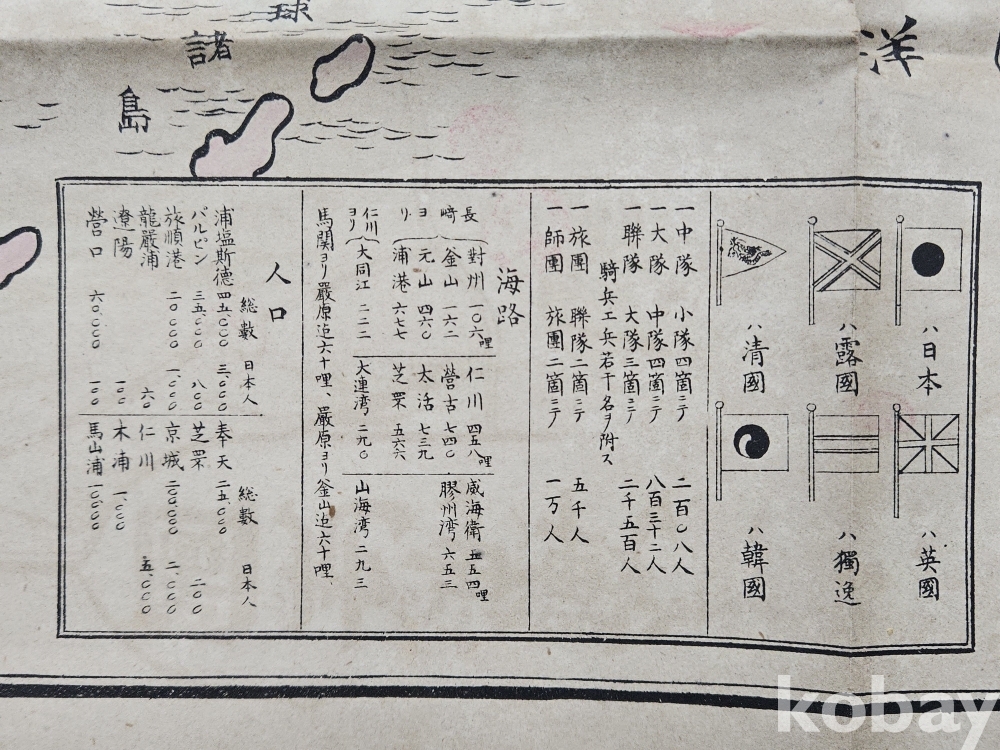 球
諸
島
洋
ハ日本
ハ英國
ハ露國
ハ獨逸
ハ清國
ハ韓國
一中隊 小隊四箇ニテ 二百〇八人
一大隊 中隊四箇ニテ 八百三十二人
一聯隊 大隊三箇ニテ 二千五百人
騎兵工兵若干名ヲ附ス
一旅團 聯隊二箇ニテ 五千人
一師團 旅團二箇ニテ 一万人
海路
長崎ヨリ
對州 一〇六哩
釜山 一六二
元山 四六〇
浦港 六七七
仁川 四五八哩
營古 七四〇
太活 七三九
芝罘 五六六
威海衛 五五四哩
膠州湾 六五三
仁川ヨリ
大同江 二二二
大連湾 二九〇
山海湾 二九三
馬関ヨリ嚴原迄六十哩、嚴原ヨリ釜山迄六十哩、
人口
総數 日本人
浦塩斯德 四五、〇〇〇 三、〇〇〇
バルビン 三五、〇〇〇 八〇〇
旅順港 二〇、〇〇〇 一、〇〇〇
龍嚴浦 六〇
遼陽 一〇〇
營口 六〇、〇〇〇 一〇〇
総數 日本人
奉天 二五、〇〇〇
芝罘 二〇〇
京城 二〇〇、〇〇〇 二、〇〇〇
仁川 五、〇〇〇
木浦 一、〇〇〇
馬山浦 一〇、〇〇〇
kobay